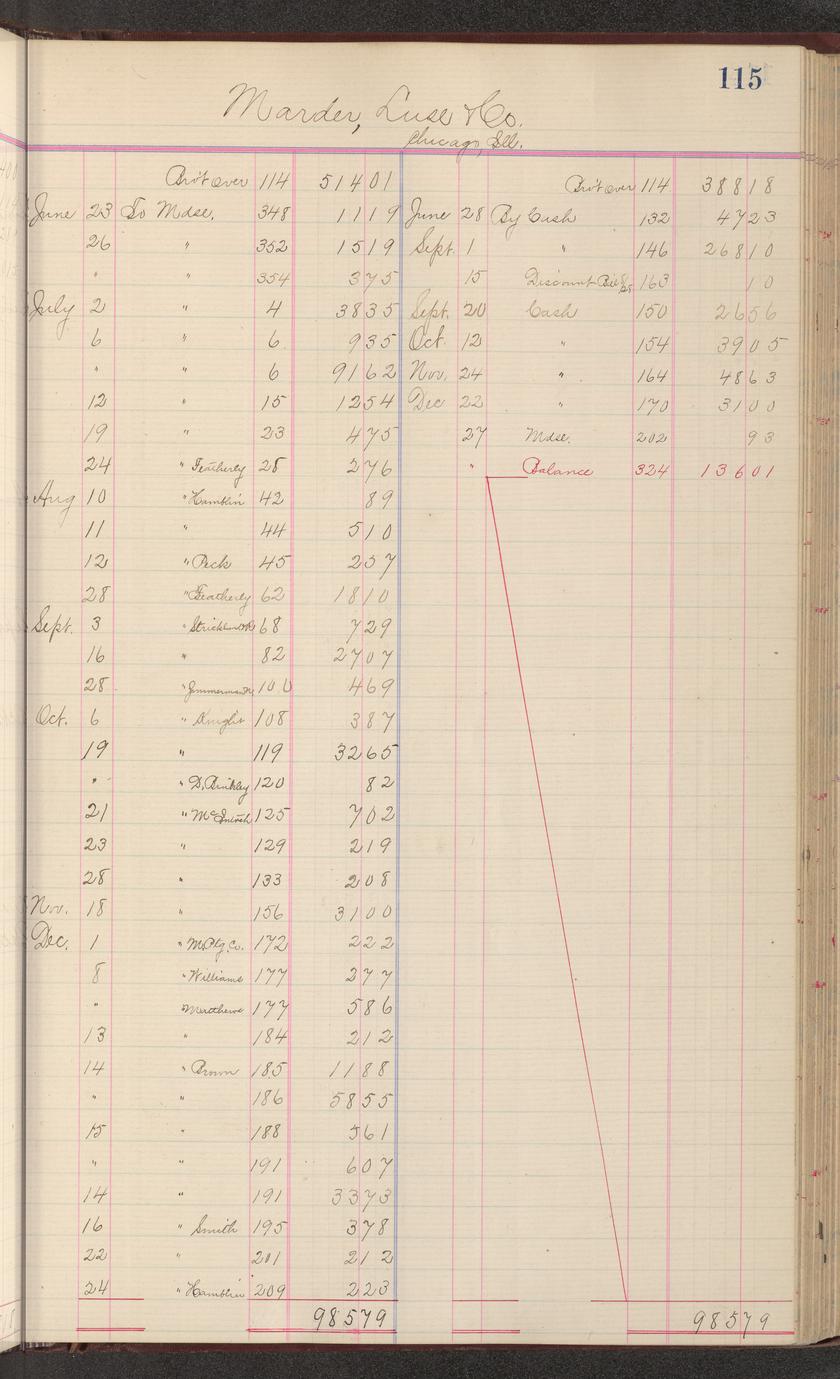 115
Marder, Luse & Co.
Chicago, Ill.
Bro't over 114 514 01
June 23 To Mdse. 348 11 19
26 " 352 15 19
" " 354 3 75
July 2 " 4 38 35
6 " 6 9 35
" " 6 91 62
12 " 15 12 54
19 " 23 4 75
24 " Featherly 28 2 76
Aug 10 " Hamblin 42 89
11 " 44 5 10
12 " Peck 45 2 57
28 " Featherly 62 18 10
Sept. 3 " 68 7 29
16 " 82 27 07
28 " 100 4 69
Oct. 6 " Knight 108 3 87
19 " 119 32 65
" " D. Brinkley 120 82
21 " McIntosh 125 7 02
23 " 129 2 19
28 " 133 2 08
Nov. 18 " 156 31 00
Dec. 1 " 172 2 22
8 " Williams 177 2 77
" 177 5 86
13 " 184 2 12
14 " Brown 185 11 88
" " 186 58 55
15 " 188 5 61
" " 191 6 07
14 " 191 33 73
16 " Smith 195 3 78
22 " 201 2 12
24 " Hamblin 209 2 23
985 79
Bro't over 114 388 18
June 28 By Cash 132 47 23
Sept. 1 " 146 268 10
15 Discount 163 10
Sept. 20 Cash 150 26 56
Oct. 12 " 154 39 05
Nov. 24 " 164 48 63
Dec 22 " 170 31 00
27 Mdse. 202 93
" Balance 324 136 01
985 79